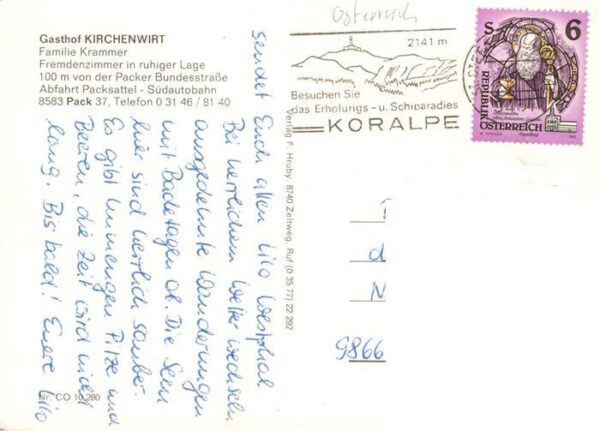 Gasthof KIRCHENWIRT
Familie Krammer
Fremdenzimmer in ruhiger Lage
100 m von der Packer Bundesstraße
Abfahrt Packsattel - Südautobahn
8583 Pack 37, Telefon 0 31 46 / 81 40
sendet Euch allen Lilo Westphal
Bei herrlichem Wetter wechseln
ausgedehnte Wanderungen
mit Badetagen ab. Die Seen
hier sind herrlich sauber.
Es gibt Unmengen Pilze und
Beeren, die Zeit wird nicht
lang. Bis bald! Euere Lilo
Nr. CO 10 280
Verlag F. Hruby, 8740 Zeltweg, Ruf (0 35 77) 22 292
Österreich
2141 m
Besuchen Sie
das Erholungs - u. Schiparadies
KORALPE
S 6
REPUBLIK
ÖSTERREICH
d
N
9866